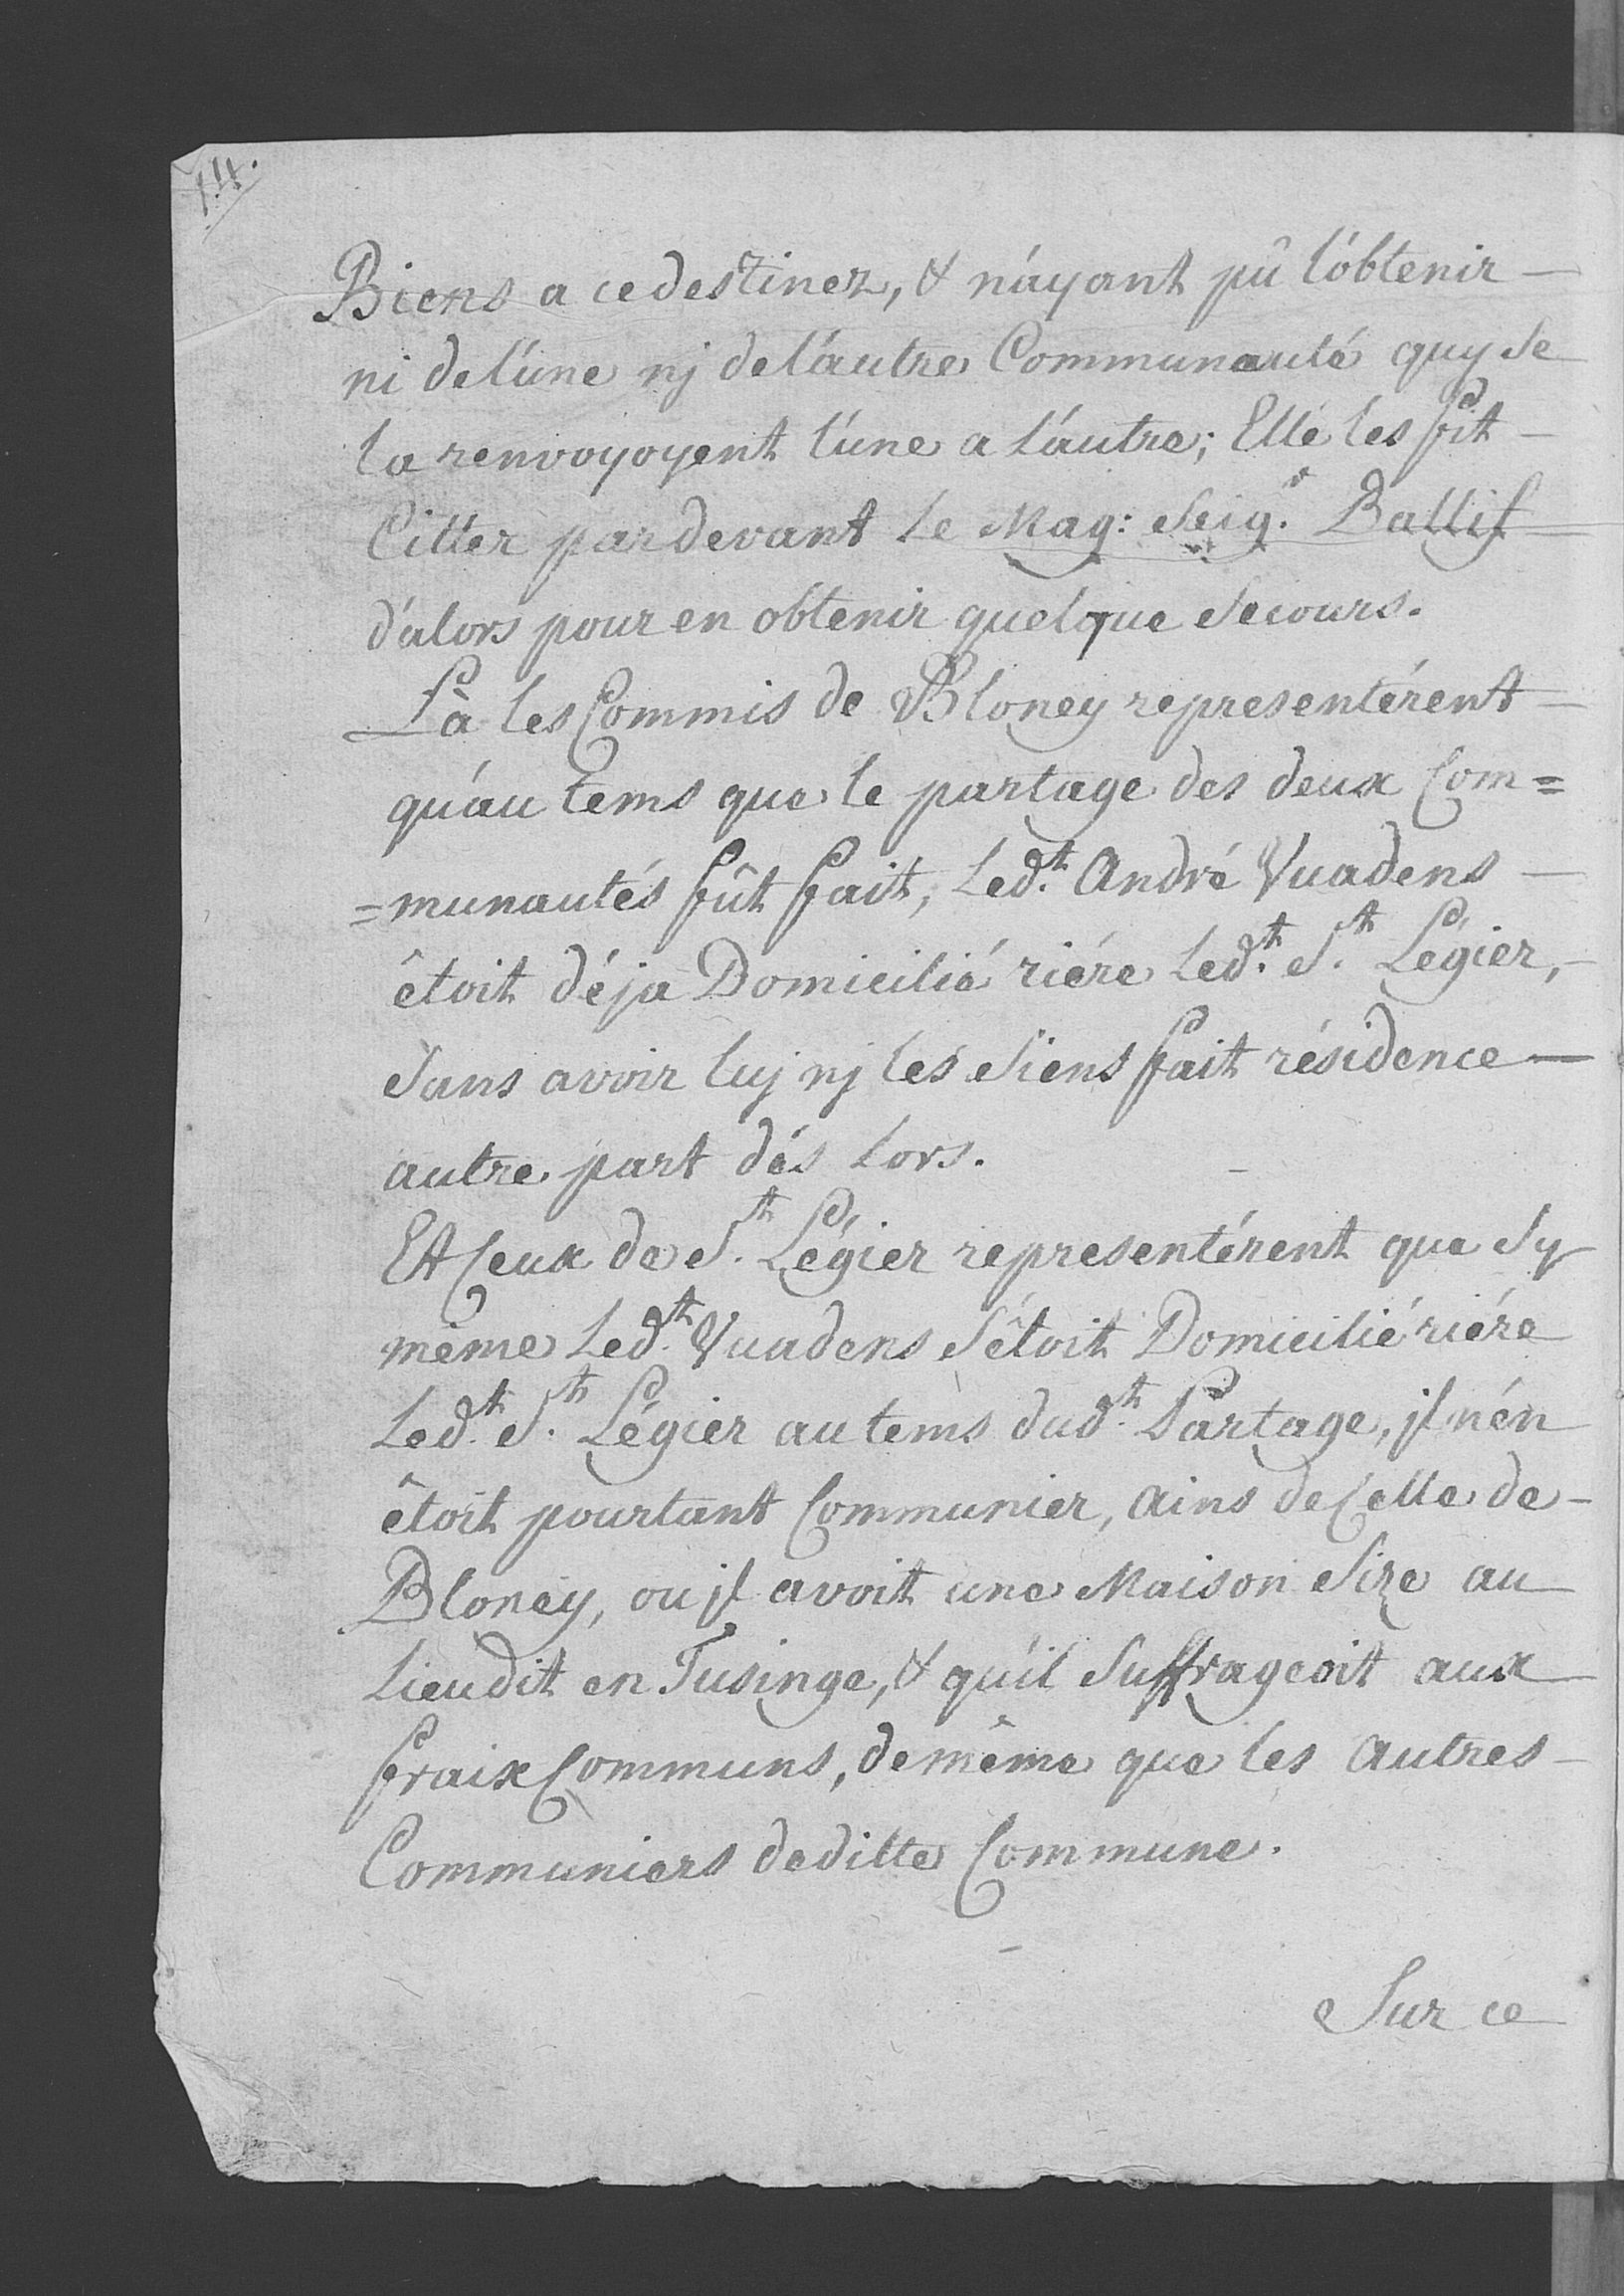 14.
Biens a ce destinez, & n'ayant pû l'obtenir -
ni de l'une nj de l'autre Communauté quy se
la renvoyoyent l'une a l'autre; Elle les fit -
Citter pardevant le Mag: Seig.r Ballif
d'alors pour en obtenir quelque Secours.
Là les Commis de Bloney representérent -
qu'au tems que le partage des deux Com=
=munautés fût fait, Led.t André Vuadens -
êtoit déja Domicilié riére Led.t S.t Légier, -
Sans avoir luj nj les Siens fait résidence -
autre part dés lors.
Et Ceux de S.t Légier representérent que Sy
même Led.t Vuadens S'étoit Domicilié riére
Led.t S.t Légier au tems dud.t Partage, jl n'én
êtoit pourtant Communier, ains de Celle de -
Bloney, ou jl avoit une Maison Size au
Lieudit en Tusinge, & qu'il Suffrageoit aux
fraix Communs, de même que les autres -
Communiers deditte Commune.
Sur ce